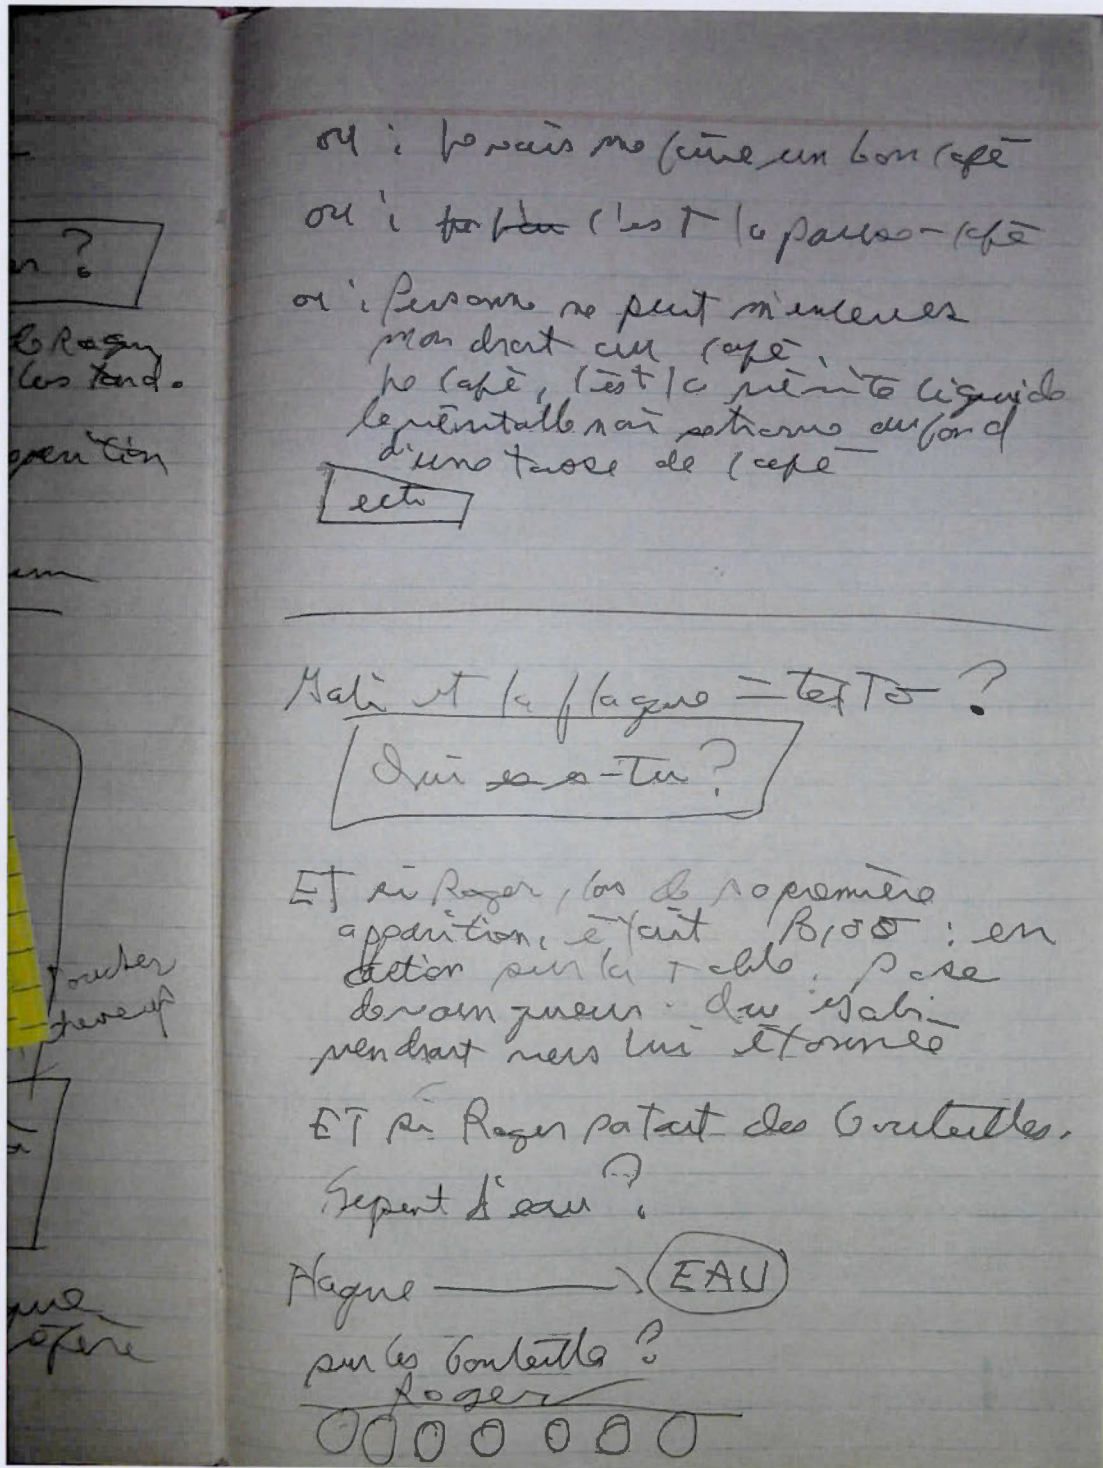 n ?
de Roger
plus tard.
parition
oucher
que
ou : je vais me faire un bon café
ou : c'est la pause-café
ou : Personne ne peut m'enlever
mon droit au café.
Le café, c'est la vérité liquide
le véritable noir se trouve au fond
d'une tasse de café
ect
Gabi et la flaque = texto ?
Qui es-tu ?
ET si Roger, lors de sa première
apparition, était : en
action sur la table. Pose
de vainqueur. Gabi
viendrait vers lui étonnée
ET si Roger des bouteilles.
Serpent d'eau ?
Flaque EAU
sur les bouteilles ?
Roger